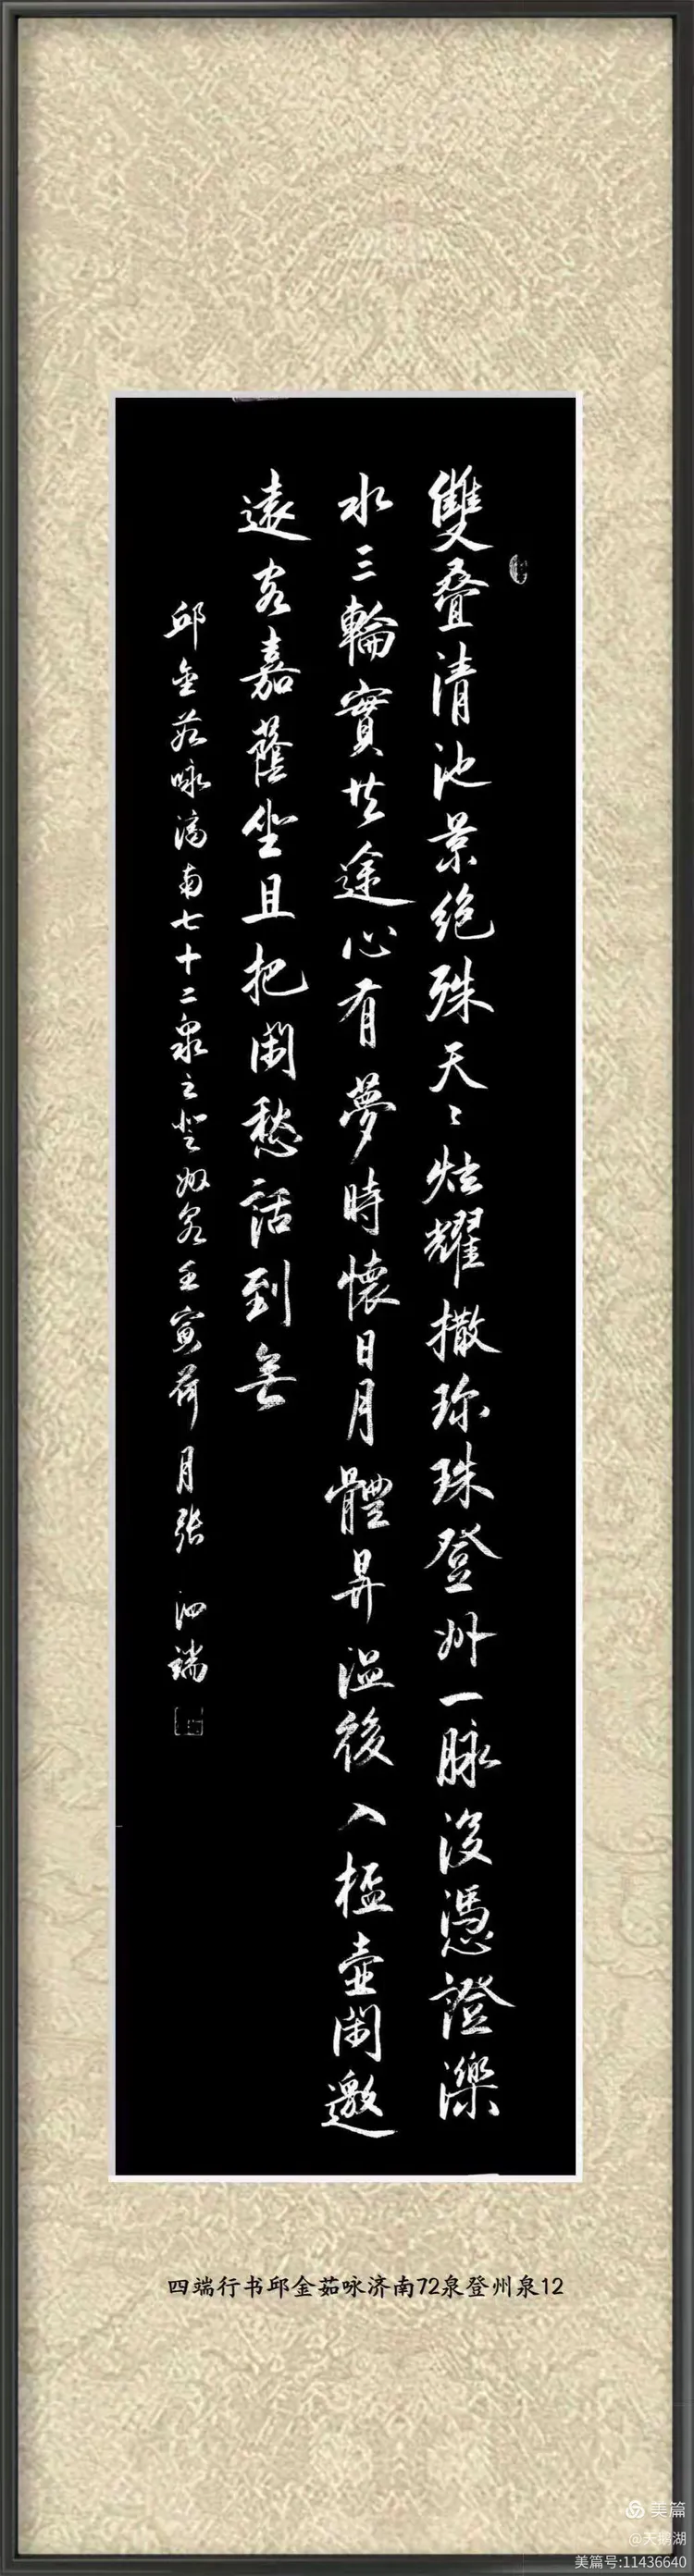 雙叠清池景絶殊天〻炫耀撒珎珠登州一脉没憑證濼
水三輪實共途心有夢時懷日月體昇溫後入榲壶閑邀
遠客嘉蔭坐且把閑愁話到無
邱金茹咏濟南七十二泉之登州泉壬寅荷月张泗端
四端行书邱金茹咏济南72泉登州泉12
美篇
@天鹅湖
美篇号:11436640